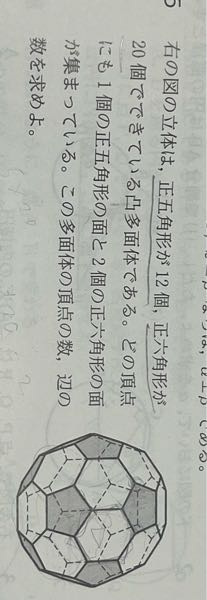 である。
5
右の図の立体は,正五角形が12個,正六角形が
20個でできている凸多面体である。どの頂点
にも1個の正五角形の面と2個の正六角形の面
が集まっている。この多面体の頂点の数,辺の
数を求めよ。